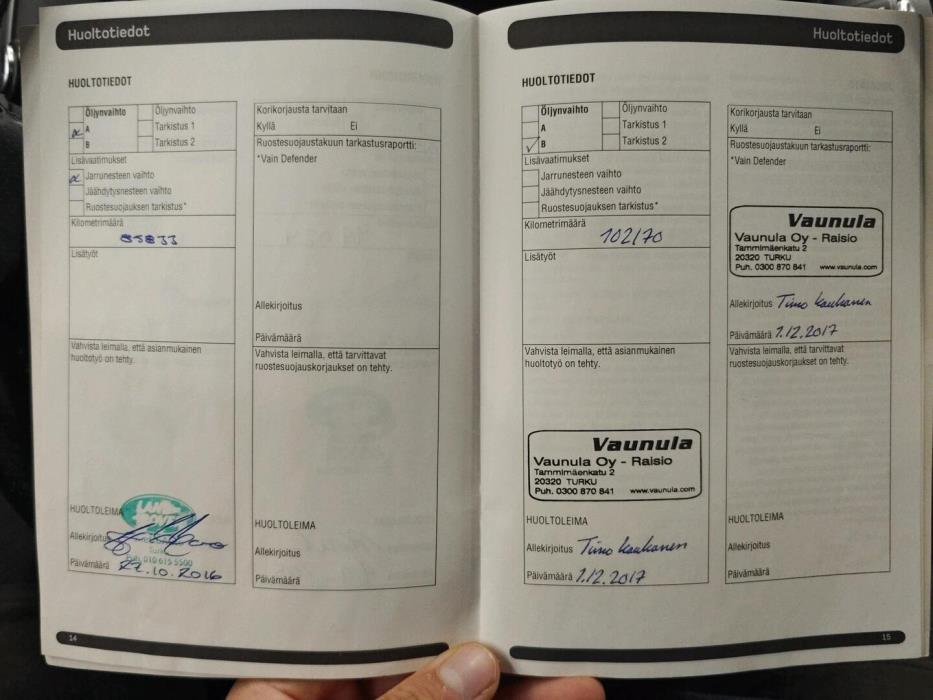 Huoltotiedot
HUOLTOTIEDOT
Öljynvaihto
A
B
Öljynvaihto
Tarkistus 1
Tarkistus 2
Lisävaatimukset
Jarrunesteen vaihto
Jäähdytysnesteen vaihto
Ruostesuojauksen tarkistus*
Kilometrimäärä
85833
Lisätyöt
Vahvista leimalla, että asianmukainen
huoltotyö on tehty.
HUOLTOLEIMA
Allekirjoitus
Puh. 010 615 5500
Päivämäärä 27.10.2016
Korikorjausta tarvitaan
Kyllä Ei
Ruostesuojaustakuun tarkastusraportti:
*Vain Defender
Allekirjoitus
Päivämäärä
Vahvista leimalla, että tarvittavat
ruostesuojauskorjaukset on tehty.
HUOLTOLEIMA
Allekirjoitus
Päivämäärä
14
Huoltotiedot
HUOLTOTIEDOT
Öljynvaihto
A
B
Öljynvaihto
Tarkistus 1
Tarkistus 2
Lisävaatimukset
Jarrunesteen vaihto
Jäähdytysnesteen vaihto
Ruostesuojauksen tarkistus*
Kilometrimäärä
102170
Lisätyöt
Vahvista leimalla, että asianmukainen
huoltotyö on tehty.
Vaunula
Vaunula Oy - Raisio
Tammimäenkatu 2
20320 TURKU
Puh. 0300 870 841 www.vaunula.com
HUOLTOLEIMA
Allekirjoitus Timo Kauhanen
Päivämäärä 1.12.2017
Korikorjausta tarvitaan
Kyllä Ei
Ruostesuojaustakuun tarkastusraportti:
*Vain Defender
Vaunula
Vaunula Oy - Raisio
Tammimäenkatu 2
20320 TURKU
Puh. 0300 870 841 www.vaunula.com
Allekirjoitus Timo Kauhanen
Päivämäärä 1.12.2017
Vahvista leimalla, että tarvittavat
ruostesuojauskorjaukset on tehty.
HUOLTOLEIMA
Allekirjoitus
Päivämäärä
15